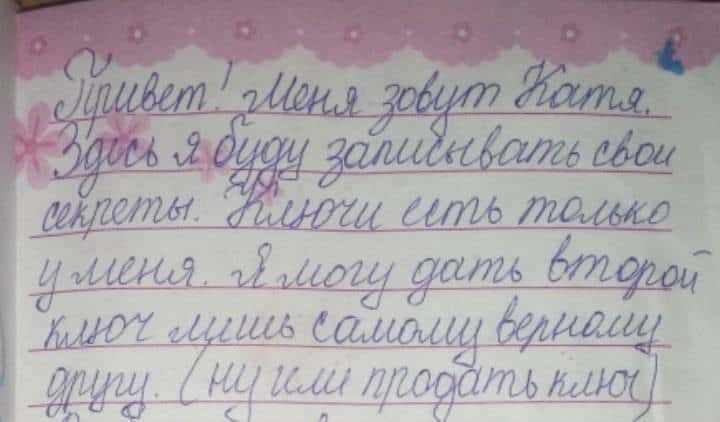 Привет! Меня зовут Катя.
Здесь я буду записывать свои
секреты. Ключи есть только
у меня. Я могу дать второй
ключ лишь самому верному
другу. (ну или продать ключ)